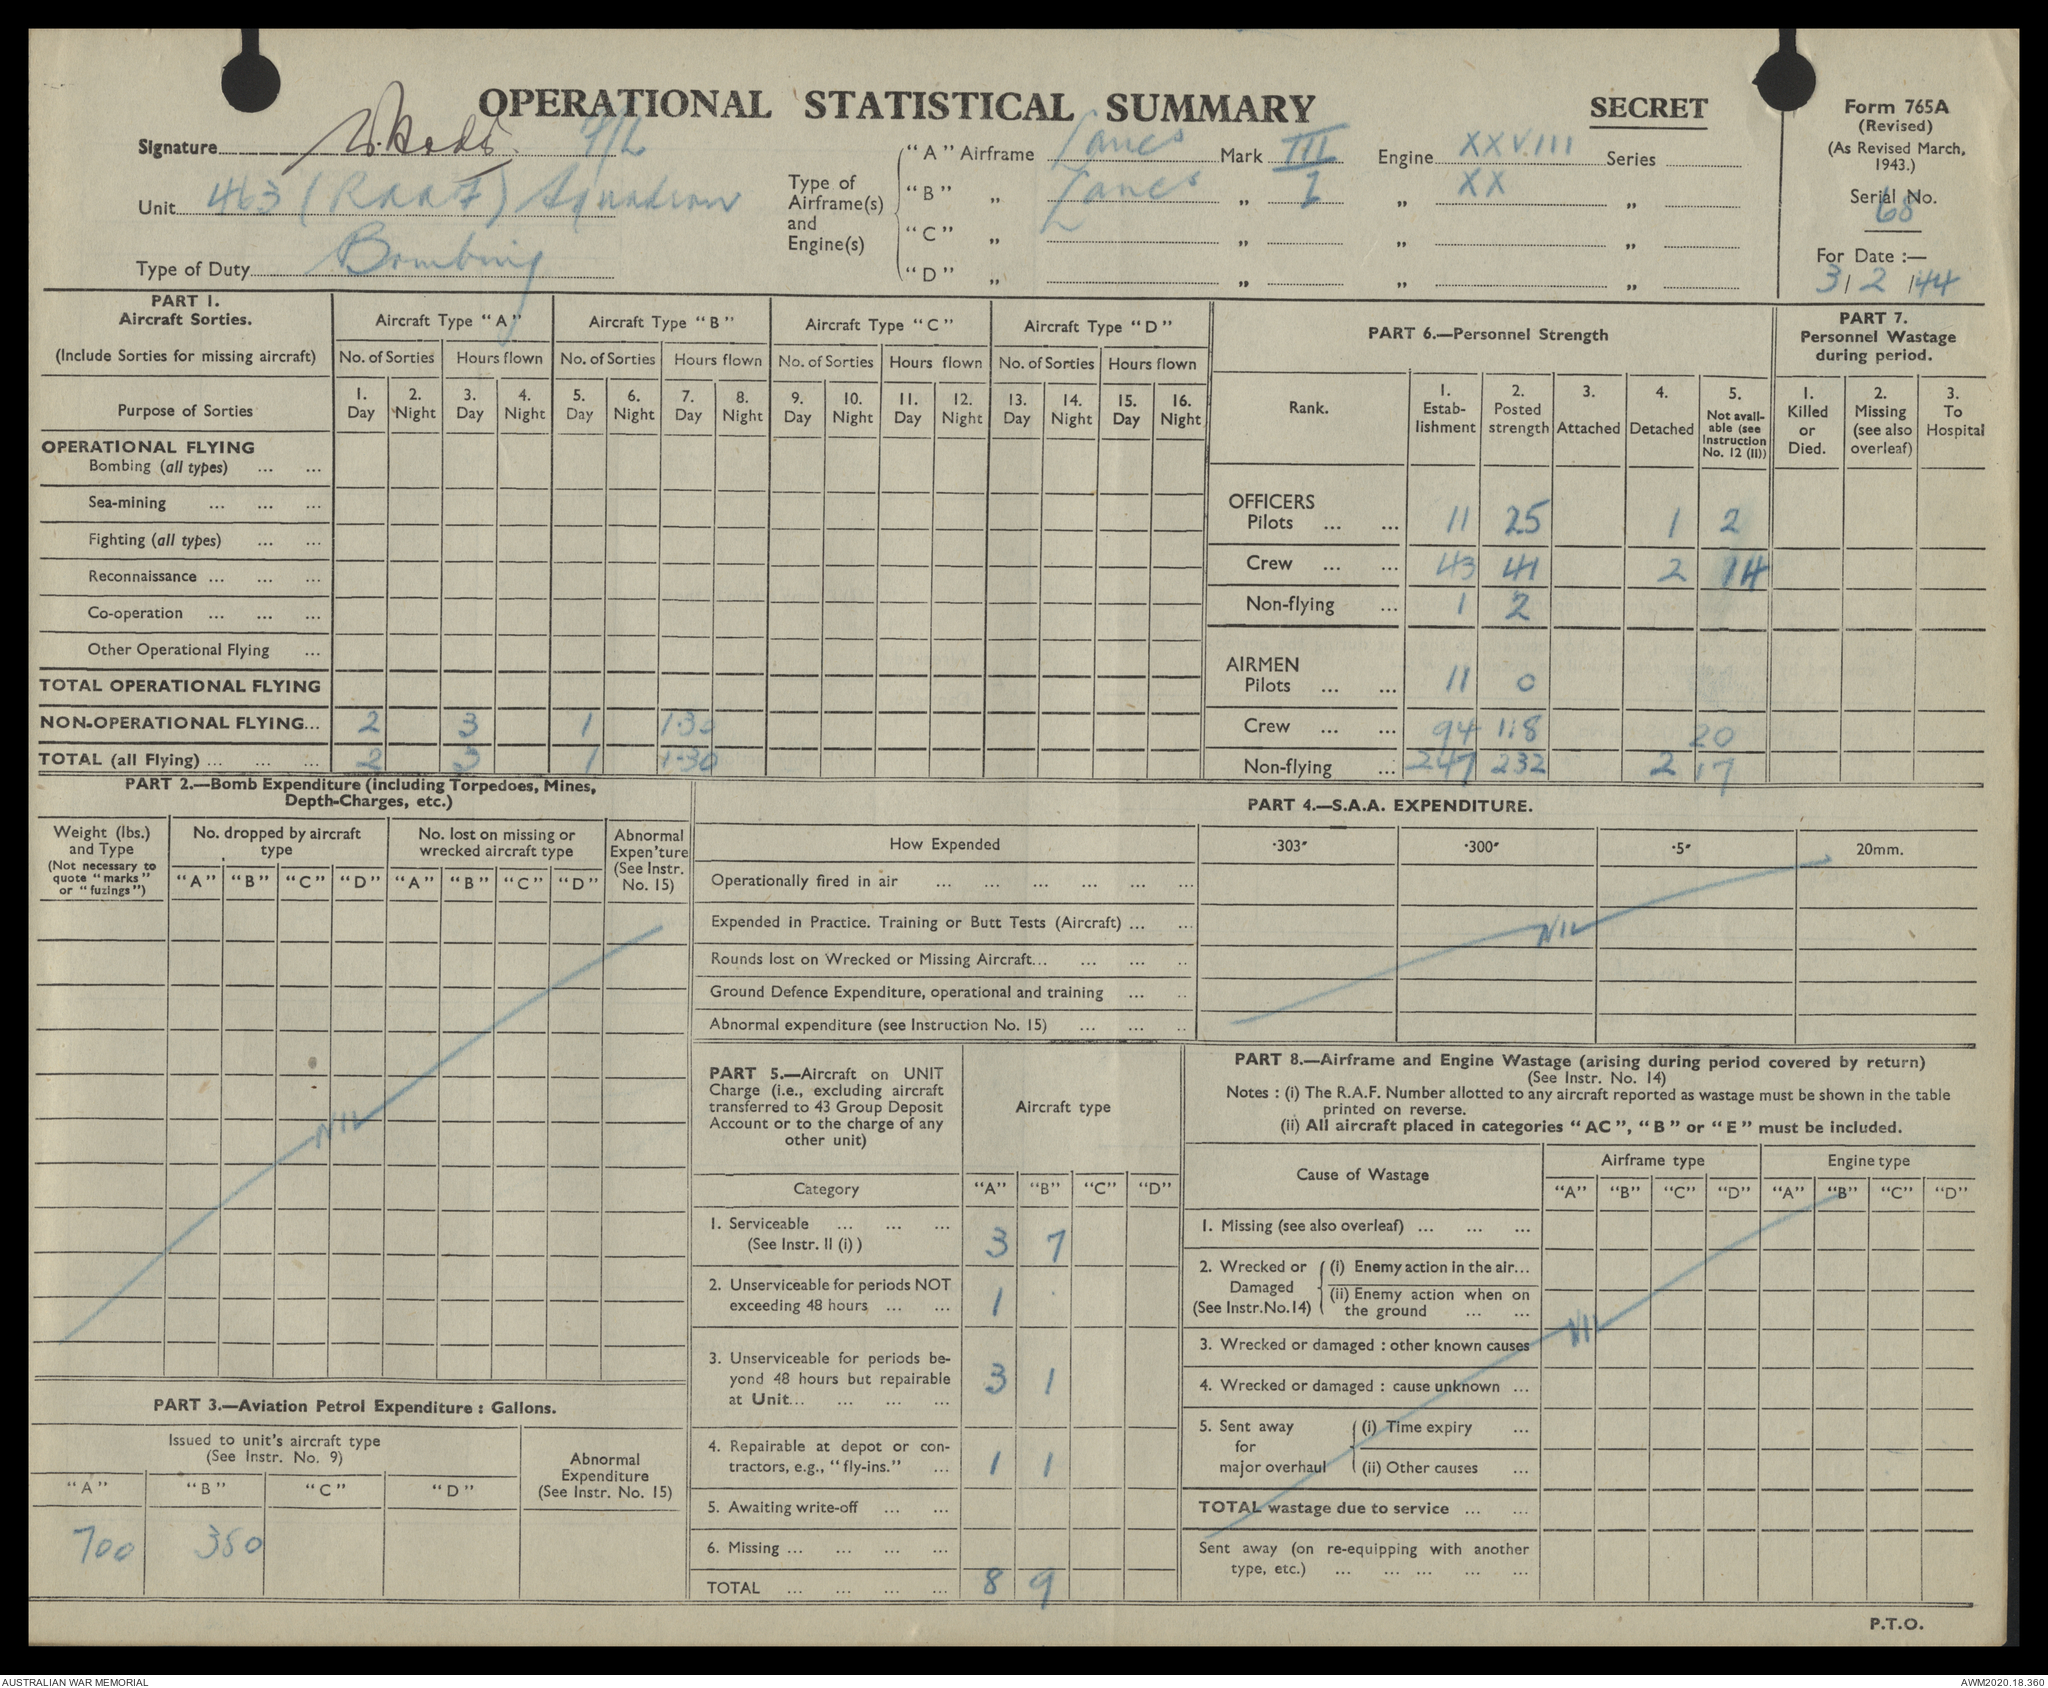 OPERATIONAL STATISTICAL SUMMARY
SECRET
Form 765A
(Revised)
(As Revised March,
1943.)
Serial No.
68
For Date :—
3/2/44
Signature F/L
Unit 463 (RAAF) Squadron
Type of Duty Bombing
Type of
Airframe(s)
and
Engine(s)
"A" Airframe Lancs Mark III Engine XXVIII Series
"B" „ Lancs „ I „ XX „
"C" „ „ „ „
"D" „ „ „ „
PART 1.
Aircraft Sorties.
(Include Sorties for missing aircraft)
Purpose of Sorties
Aircraft Type "A" Aircraft Type "B" Aircraft Type "C" Aircraft Type "D"
No. of Sorties Hours flown No. of Sorties Hours flown No. of Sorties Hours flown No. of Sorties Hours flown
1. 2. 3. 4. 5. 6. 7. 8. 9. 10. 11. 12. 13. 14. 15. 16.
Day Night Day Night Day Night Day Night Day Night Day Night Day Night Day Night
OPERATIONAL FLYING
Bombing (all types) ... ...
Sea-mining ... ... ...
Fighting (all types) ... ...
Reconnaissance ... ... ...
Co-operation ... ... ...
Other Operational Flying ...
TOTAL OPERATIONAL FLYING
NON-OPERATIONAL FLYING... 2 3 1 1·30
TOTAL (all Flying) ... ... ... 2 3 1 1·30
PART 6.—Personnel Strength
Rank.
1. Estab-
lishment
2. Posted
strength
3. Attached
4. Detached
5.
Not avail-
able (see
Instruction
No. 12 (II))
OFFICERS
Pilots ... ... 11 25 1 2
Crew ... ... 43 41 2 14
Non-flying ... 1 2
AIRMEN
Pilots ... ... 11 0
Crew ... ... 94 118 20
Non-flying ... 247 232 2 17
PART 7.
Personnel Wastage
during period.
1.
Killed
or
Died.
2.
Missing
(see also
overleaf)
3.
To
Hospital
PART 2.—Bomb Expenditure (including Torpedoes, Mines,
Depth-Charges, etc.)
Weight (lbs.)
and Type
(Not necessary to
quote "marks"
or "fuzings")
No. dropped by aircraft
type
No. lost on missing or
wrecked aircraft type
Abnormal
Expen'ture
(See Instr.
No. 15)
"A" "B" "C" "D" "A" "B" "C" "D"
NIL
PART 3.—Aviation Petrol Expenditure : Gallons.
Issued to unit's aircraft type
(See Instr. No. 9)
Abnormal
Expenditure
(See Instr. No. 15)
"A" "B" "C" "D"
700 350
PART 4.—S.A.A. EXPENDITURE.
How Expended ·303″ ·300″ ·5″ 20mm.
Operationally fired in air ... ... ... ... ... ...
Expended in Practice. Training or Butt Tests (Aircraft) ... ...
Rounds lost on Wrecked or Missing Aircraft... ... ... ..
Ground Defence Expenditure, operational and training ... ..
Abnormal expenditure (see Instruction No. 15) ... ... ..
NIL
PART 5.—Aircraft on UNIT
Charge (i.e., excluding aircraft
transferred to 43 Group Deposit
Account or to the charge of any
other unit)
Aircraft type
Category "A" "B" "C" "D"
1. Serviceable ... ... ...
(See Instr. II (i) ) 3 7
2. Unserviceable for periods NOT
exceeding 48 hours ... ... 1
3. Unserviceable for periods be-
yond 48 hours but repairable
at Unit... ... ... ... 3 1
4. Repairable at depot or con-
tractors, e.g., "fly-ins." ... 1 1
5. Awaiting write-off ... ...
6. Missing ... ... ... ...
TOTAL ... ... ... ... 8 9
PART 8.—Airframe and Engine Wastage (arising during period covered by return)
(See Instr. No. 14)
Notes : (i) The R.A.F. Number allotted to any aircraft reported as wastage must be shown in the table
printed on reverse.
(ii) All aircraft placed in categories "AC", "B" or "E" must be included.
Cause of Wastage
Airframe type Engine type
"A" "B" "C" "D" "A" "B" "C" "D"
1. Missing (see also overleaf) ... ... ...
2. Wrecked or
Damaged
(See Instr.No.14)
(i) Enemy action in the air...
(ii) Enemy action when on
the ground ... ...
3. Wrecked or damaged : other known causes
4. Wrecked or damaged : cause unknown ...
5. Sent away
for
major overhaul
(i) Time expiry ...
(ii) Other causes ...
TOTAL wastage due to service ... ...
Sent away (on re-equipping with another
type, etc.) ... ... ... ... ...
NIL
P.T.O.
AUSTRALIAN WAR MEMORIAL
AWM2020.18.360